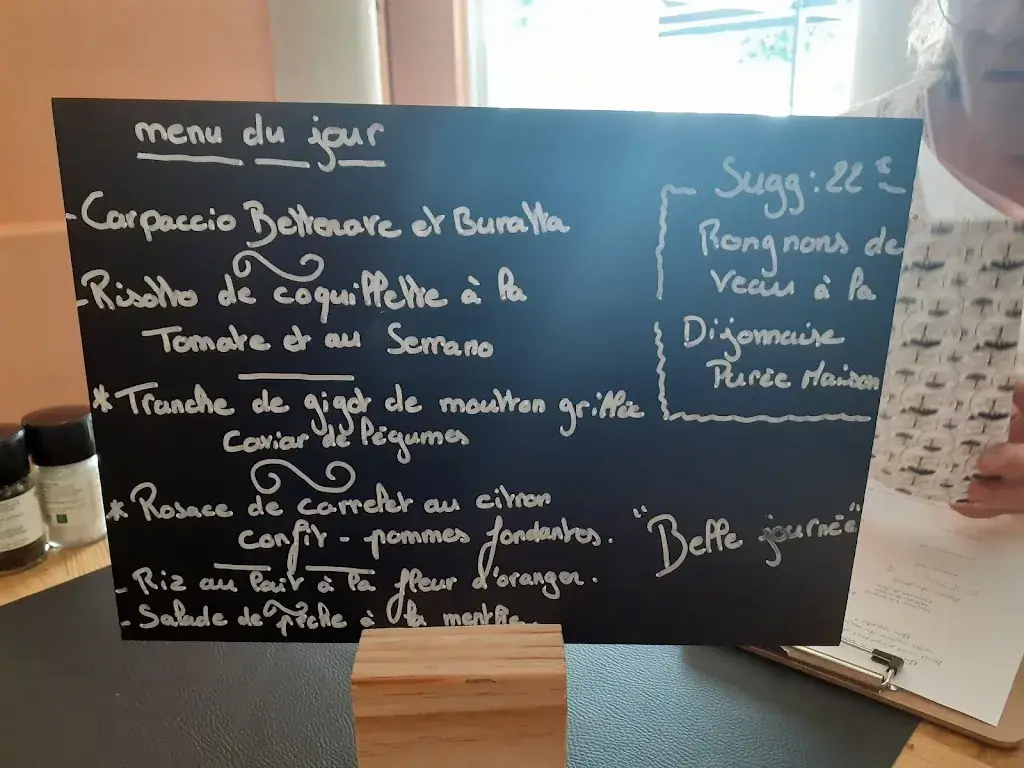 menu du jour
- Carpaccio Betterave et Buratta
- Risotto de coquillette à la
Tomate et au Serrano
* Tranche de gigot de moutton grillée
caviar de légumes
* Rosace de carrelet au citron
confit - pommes fondantes.
- Riz au lait à la fleur d'oranger.
- Salade de pêche à la menthe.
Sugg: 22 €
Rongnons de
veau à la
Dijonnaise
Purée Maison
"Belle journée"